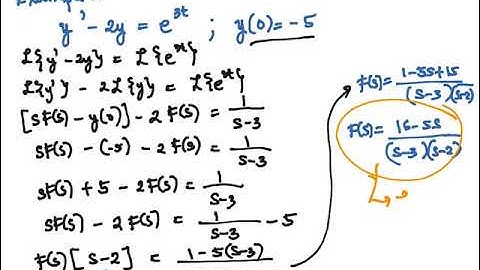 y' - 2y = e^{3t} ; y(0) = -5
L{y' - 2y} = L{e^{3t}}
L{y'} - 2L{y} = L{e^{3t}}
[sF(s) - y(0)] - 2F(s) = 1/(s-3)
sF(s) - (-5) - 2F(s) = 1/(s-3)
sF(s) + 5 - 2F(s) = 1/(s-3)
sF(s) - 2F(s) = 1/(s-3) - 5
F(s)[s-2] = 1-5(s-3)
F(s) = (1-5s+15)/((s-3)(s-2))
F(s) = (16-5s)/((s-3)(s-2))